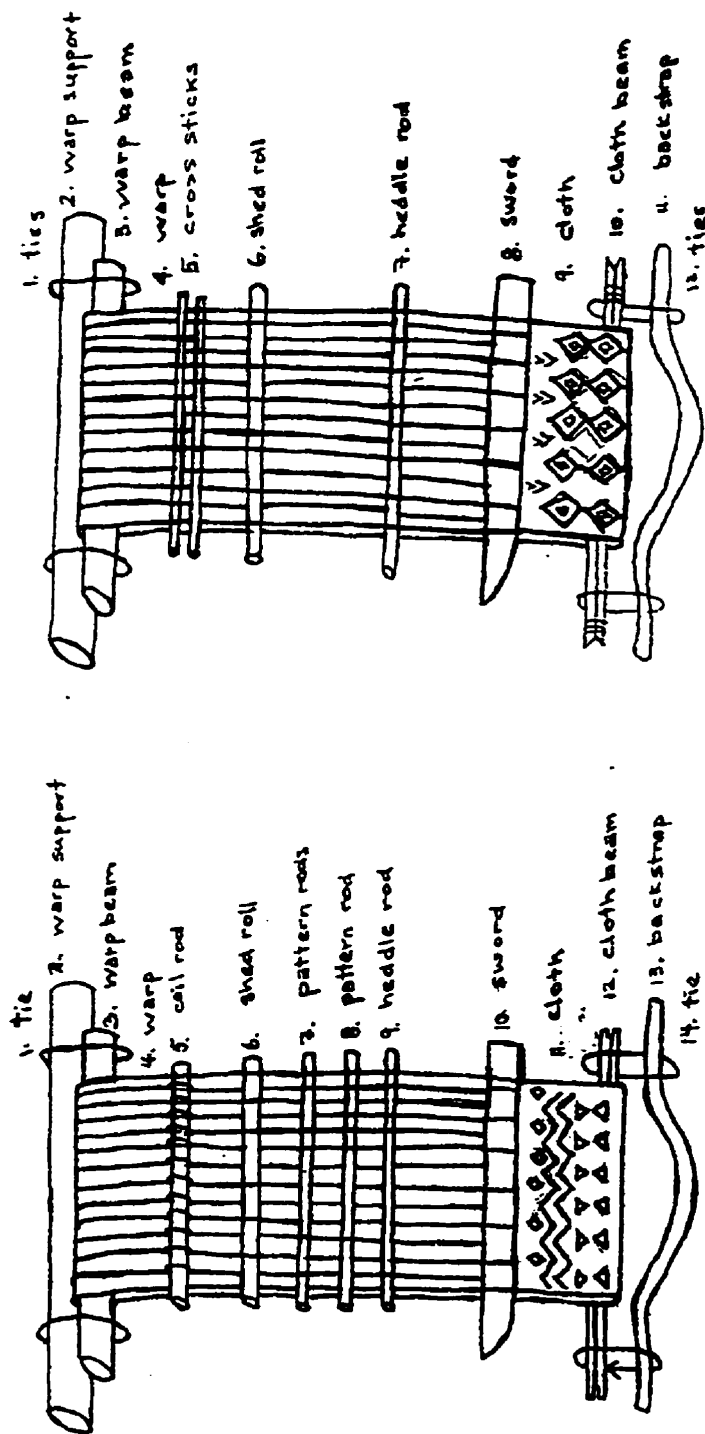 1. ties
2. warp support
3. warp beam
4. warp
5. cross sticks
6. shed roll
7. heddle rod
8. sword
9. cloth
10. cloth beam
11. backstrap
12. ties
1. tie
2. warp support
3. warp beam
4. warp
5. coil rod
6. shed roll
7. pattern rods
8. pattern rod
9. heddle rod
10. sword
11. cloth
12. cloth beam
13. backstrap
14. tie